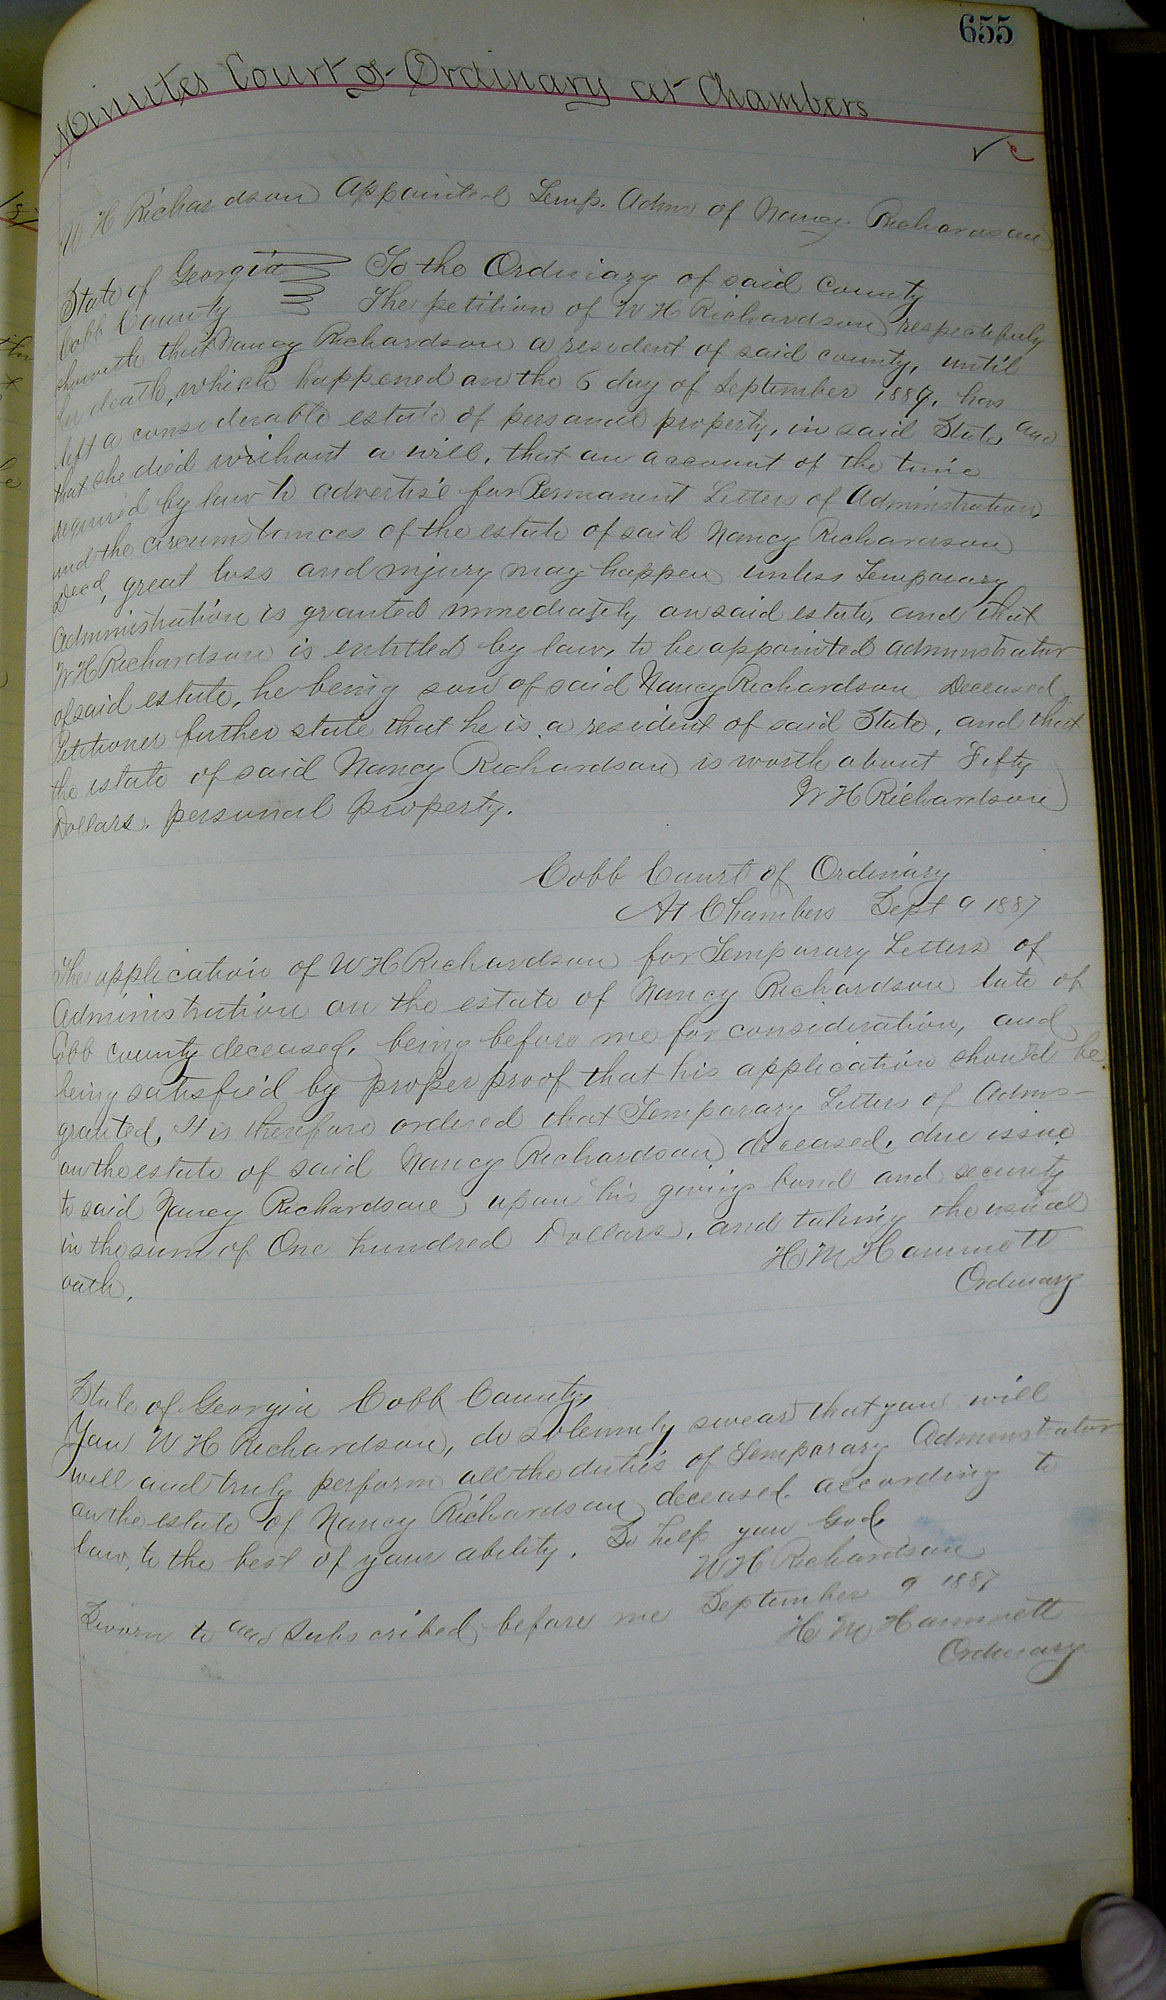 655
Minutes Court of Ordinary at Chambers
W H Richardson Appointed Temp. Admr of Nancy Richardson
State of Georgia
Cobb County
To the Ordinary of said County
The petition of W H Richardson respectfuly
showeth that Nancy Richardson a resident of said county, until
her death, which happened on the 6 day of September 1887, has
left a considerable estate of personal property, in said State, and
that she died without a will, that on account of the time
required by law to advertise for Permanent Letters of Administration,
and the circumstances of the estate of said Nancy Richardson
Decd, great loss and injury may happen unless Temporary
Administration is granted immediately on said estate, and that
W H Richardson is entitled by law, to be appointed administrator
of said estate, he being son of said Nancy Richardson Deceased,
Petitioner further state that he is a resident of said State, and that
the estate of said Nancy Richardson is worth about Fifty
Dollars. personal property.
W H Richardson
Cobb Court of Ordinary
At Chambers Sept 9 1887
The application of W H Richardson for Temporary Letters of
Administration on the estate of Nancy Richardson late of
Cobb county deceased, being before me for consideration, and
being satisfied by proper proof that his application should be
granted, It is therefore ordered that Temporary Letters of Adms-
on the estate of said Nancy Richardson deceased, due issue
to said Nancy Richardson upon his giving bond and security
in the sum of One hundred Dollars, and taking the usual
oath.
H M Hammett
Ordinary
State of Georgia Cobb County,
You W H Richardson, do solemnly swear that you will
well and truly perform all the duties of Temporary Administrator
on the estate of Nancy Richardson deceased. according to
law, to the best of your ability. So help you God
W H Richardson
Sworn to and Subscribed before me September 9 1887
H M Hammett
Ordinary